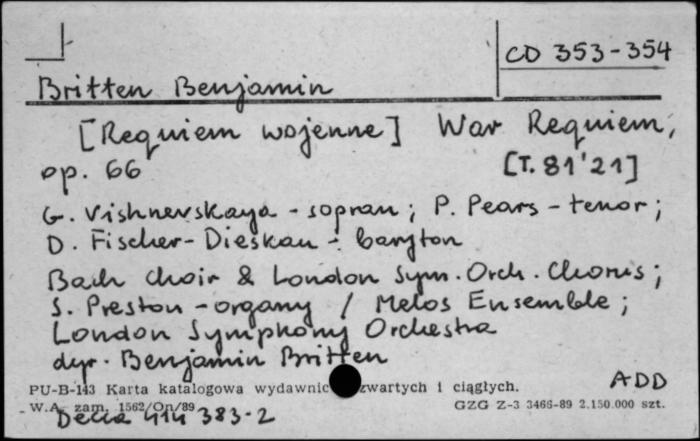 CD 353-354
Britten Benjamin
[Requiem wojenne] War Requiem,
op. 66 [T. 81'21]
G. Vishnevskaya - sopran; P. Pears - tenor;
D. Fischer-Dieskau - baryton
Bach Choir & London Sym. Orch. Chorus;
S. Preston - organy / Melos Ensemble;
London Symphony Orchestra
dyr. Benjamin Britten
ADD
PU-B-143 Karta katalogowa wydawnic zwartych i ciągłych.
W.A. zam. 1562/On/89 GZG Z-3 3466-89 2.150.000 szt.
Decca 414 383-2